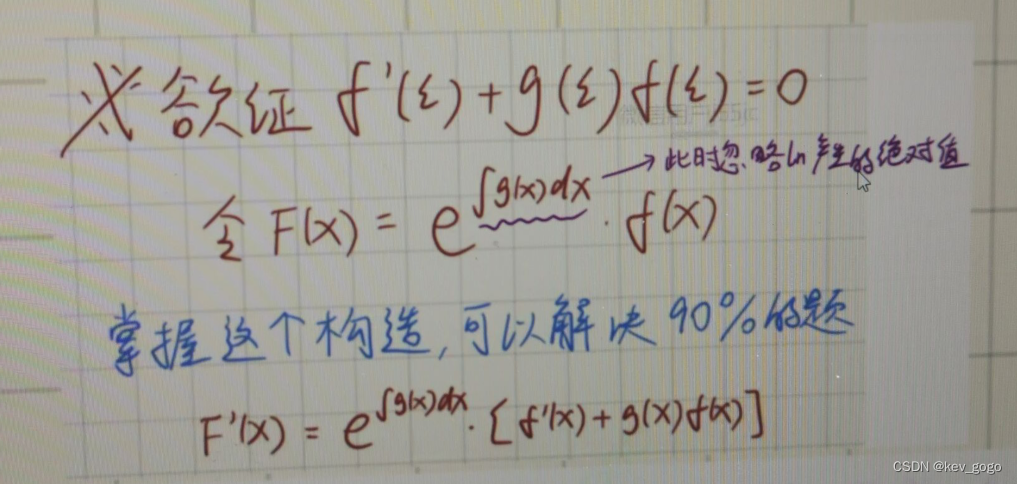 ※ 欲证 f'(ξ)+g(ξ)f(ξ)=0
→此时忽略ln产生的绝对值
令 F(x) = e^{∫g(x)dx} · f(x)
掌握这个构造,可以解决90%的题
F'(x) = e^{∫g(x)dx} · [f'(x)+g(x)f(x)]
CSDN @kev_gogo